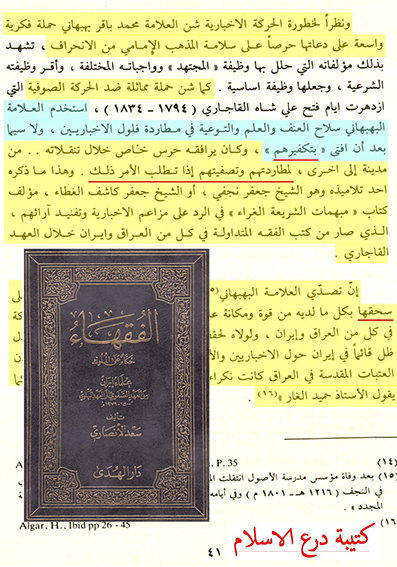 ونظراً لخطورة الحركة الاخبارية شن العلامة محمد باقر بهبهاني حملة فكرية
واسعة على دعاتها حرصاً على سلامة المذهب الإمامي من الانحراف ، تشهد
بذلك مؤلفاته التي حلل بها وظيفة « المجتهد » وواجباته المختلفة ، وأقر وظيفته
الشرعية ، وجعلها وظيفة اساسية . كما شن حملة مماثلة ضد الحركة الصوفية التي
ازدهرت ايام فتح علي شاه القاجاري ( ١٧٩٤ - ١٨٣٤ ) ، استخدم العلامة
البهبهاني سلاح العنف والعلم والتوعية في مطاردة فلول الاخباريـين ، ولا سيما
بعد أن افتى « بتكفيرهم » ، وكـان يرافقـه حرس خـاص خلال تنقـلاته .. من
مدينة إلى اخرى ، لمطاردتهم وتصفيتهم إذا تـطلب الأمر ذلـك . وهذا مـا ذكره
احد تلاميذه وهو الشيخ جعفر نجفي ، أو الشيخ جعفر كاشف الغطاء ، مؤلف
كتاب « مبهمات الشريعة الغراء » في الرد على مزاعم الاخبارية وتفنيد آرائهم ،
الـذي صار من كتب الفقه المتداولـة في كل من العـراق وايران خـلال العهـد
القاجاري .
إنّ تصدّي العلامة البهبهاني(١٥
سحقها بكل ما لديه من قوة ومكانة عا
في كل من العراق وإيران ، ولولاه لحقق
ظل قائماً في إيران حول الاخباريين والأ
العتبات المقدسة في العراق كانت نكراء
يقول الأستاذ حميد الغار »(١٦) .
لى
ى
كما
الفقهاء
حكام على الملوك
علماء إيران
من العهد الصفوي إلى العهد البهلوي
تأليف
سعد الأنصاري
دار الهدى
(١٤)
P. 35
(١٥) بعد وفاة مؤسس مدرسة الأصول انتقلت الم
في النجف ( ١٢١٦ هـ - ١٨٠١ م ) وفي أيامه
المجدد » .
Algar, H., Ibid pp 26 - 45
(١٦
٤١
كتيبة درع الاسلام